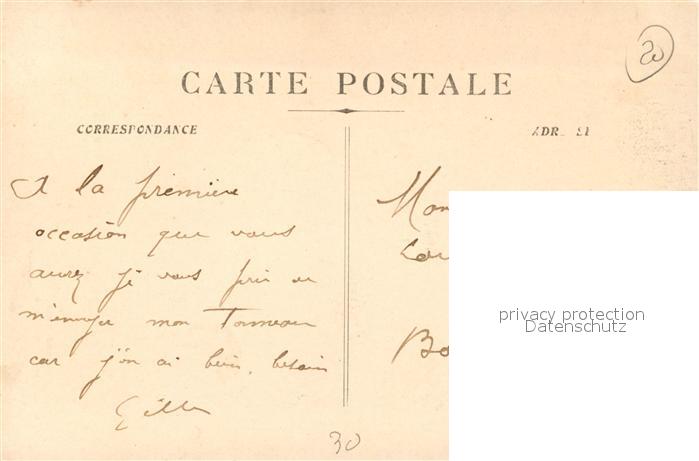 20
CARTE POSTALE
CORRESPONDANCE
ADR
A la première
occasion que vous
aurez je vous prie de
m'envoyer mon Tonneau
car j'en ai bien besoin
Gille
Mon
Lou
Bo
privacy protection
Datenschutz
30